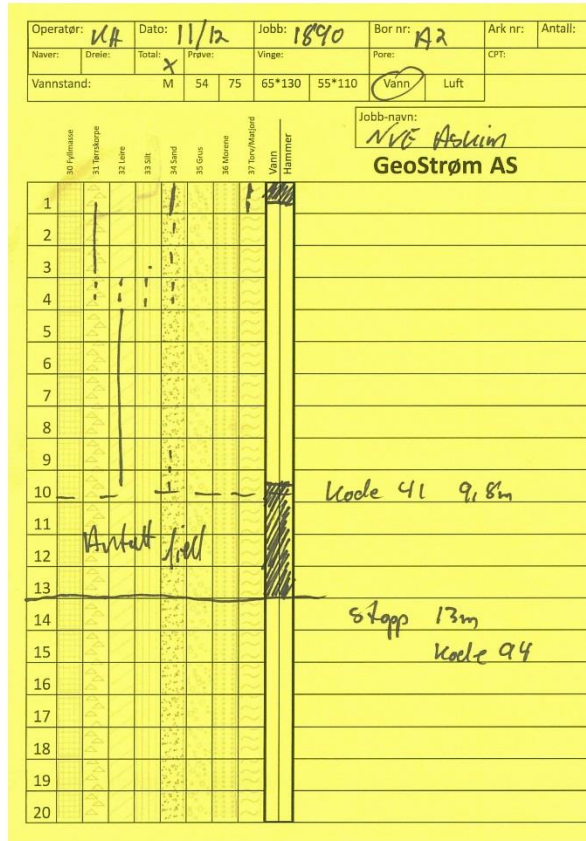 Operatør: KA Dato: 11/12 Jobb: 1890 Bor nr: A2 Ark nr: Antall:
Naver: Dreie: Total: X Prøve: Vinge: Pore: CPT:
Vannstand: M 54 75 65*130 55*110 Vann Luft
Jobb-navn:
NVE Askim
GeoStrøm AS
30 Fyllmasse 31 Tørrskorpe 32 Leire 33 Silt 34 Sand 35 Grus 36 Morene 37 Torv/Matjord Vann Hammer
1
2
3
4
5
6
7
8
9
10 Kode 41 9,8m
11
Antatt fjell
12
13
14 Stopp 13m
15 Kode 94
16
17
18
19
20